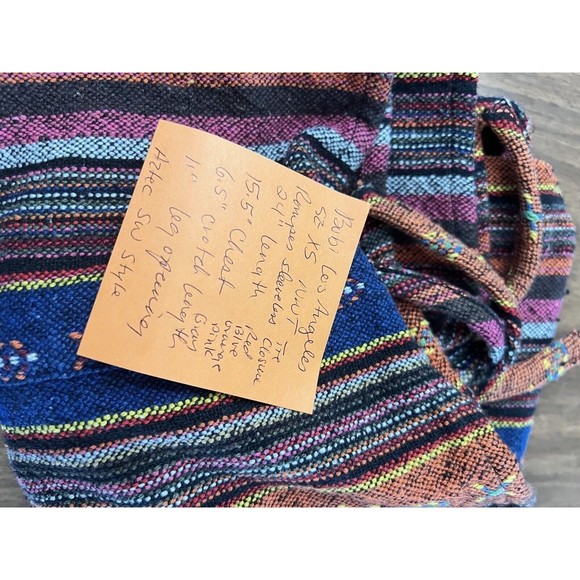 Bibi Los Angeles
Sz XS NWT
Romper sleeveless Tie
24" length Closure
15.5" Chest Red
6.5" Crotch length Blue
Orange
Pink
Gray
11" leg opening
Aztec SW Style